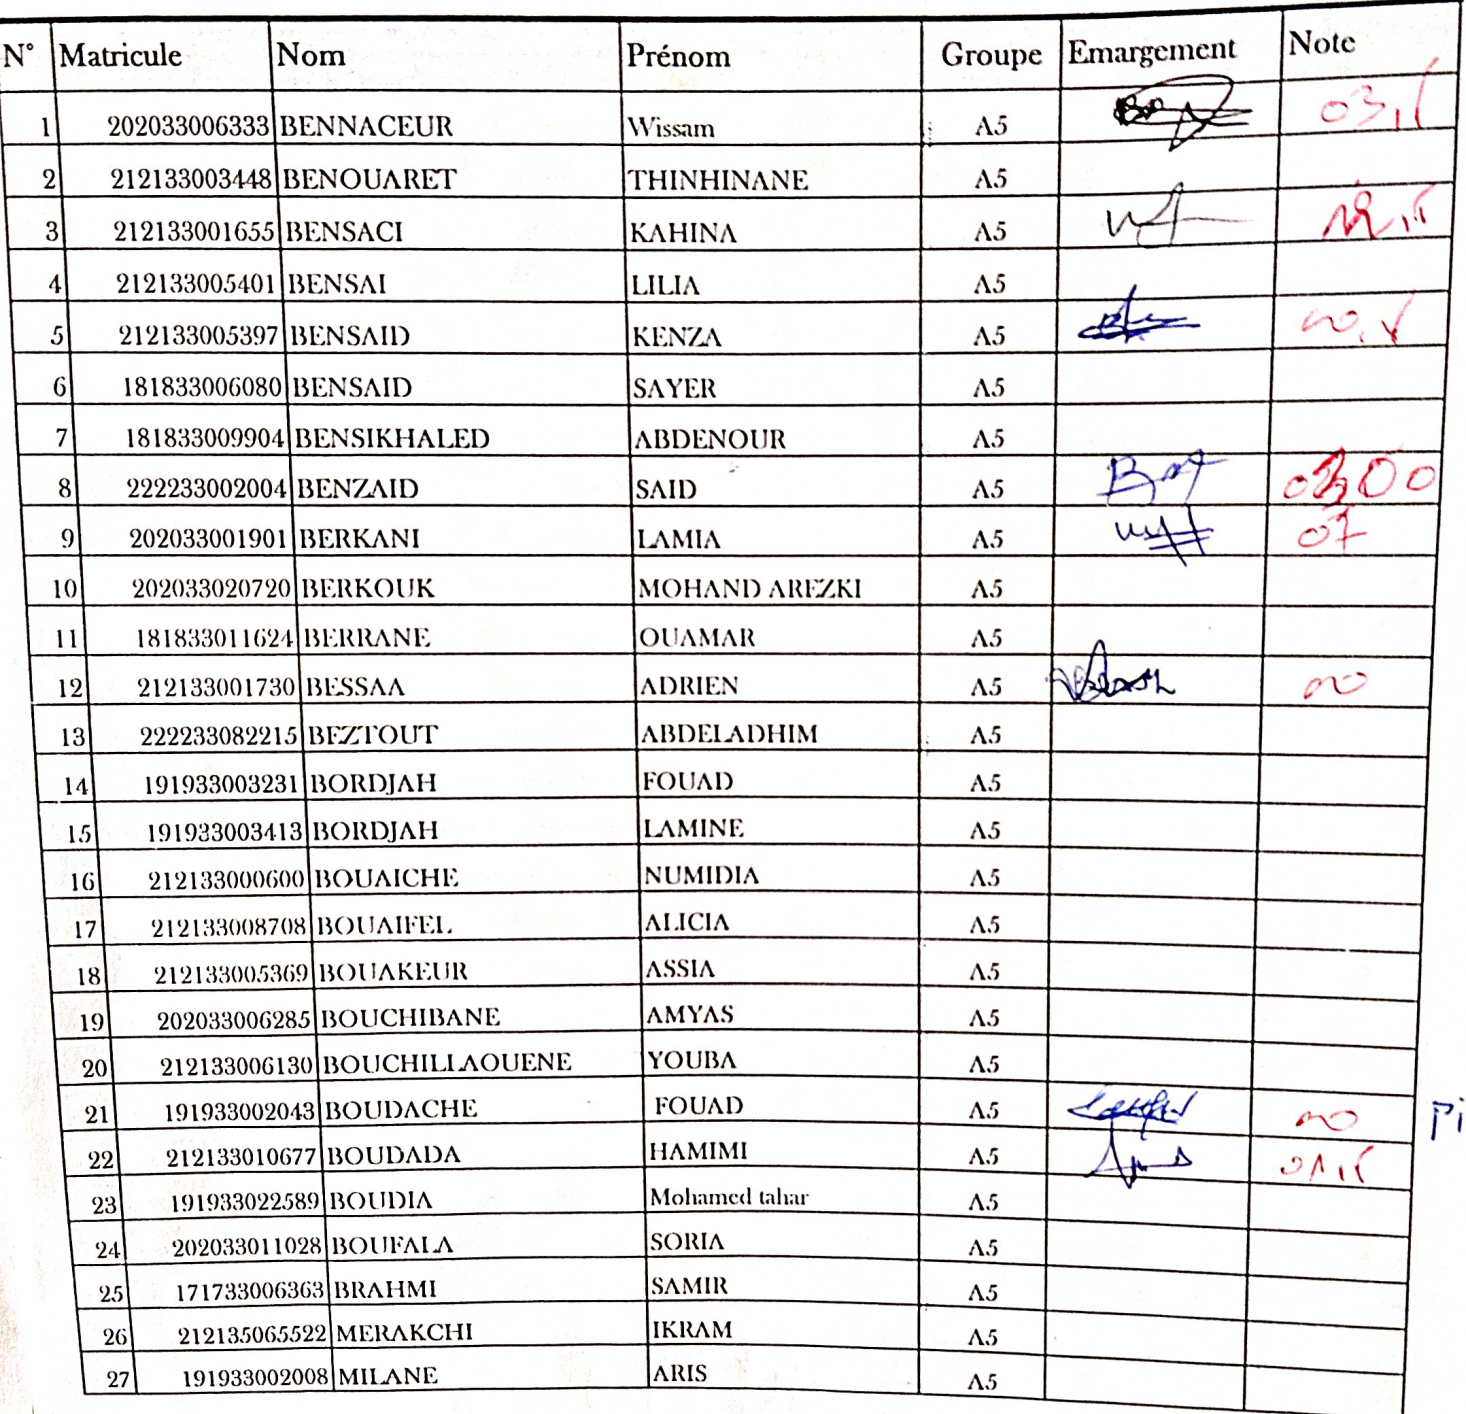 N° Matricule Nom Prénom Groupe Emargement Note
1 202033006333 BENNACEUR Wissam A5 03,5
2 212133003448 BENOUARET THINHINANE A5
3 212133001655 BENSACI KAHINA A5
4 212133005401 BENSAI LILIA A5
5 212133005397 BENSAID KENZA A5
6 181833006080 BENSAID SAYER A5
7 181833009904 BENSIKHALED ABDENOUR A5
8 222233002004 BENZAID SAID A5
9 202033001901 BERKANI LAMIA A5 07
10 202033020720 BERKOUK MOHAND AREZKI A5
11 181833011624 BERRANE OUAMAR A5
12 212133001730 BESSAA ADRIEN A5
13 222233082215 BEZTOUT ABDELADHIM A5
14 191933003231 BORDJAH FOUAD A5
15 191933003413 BORDJAH LAMINE A5
16 212133000600 BOUAICHE NUMIDIA A5
17 212133008708 BOUAIFEL ALICIA A5
18 212133005369 BOUAKEUR ASSIA A5
19 202033006285 BOUCHIBANE AMYAS A5
20 212133006130 BOUCHILLAOUENE YOUBA A5
21 191933002043 BOUDACHE FOUAD A5
22 212133010677 BOUDADA HAMIMI A5 01,5
23 191933022589 BOUDIA Mohamed tahar A5
24 202033011028 BOUFALA SORIA A5
25 171733006363 BRAHMI SAMIR A5
26 212135065522 MERAKCHI IKRAM A5
27 191933002008 MILANE ARIS A5